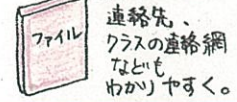 ファイル
連絡先、
クラスの連絡網
なども
わかりやすく。